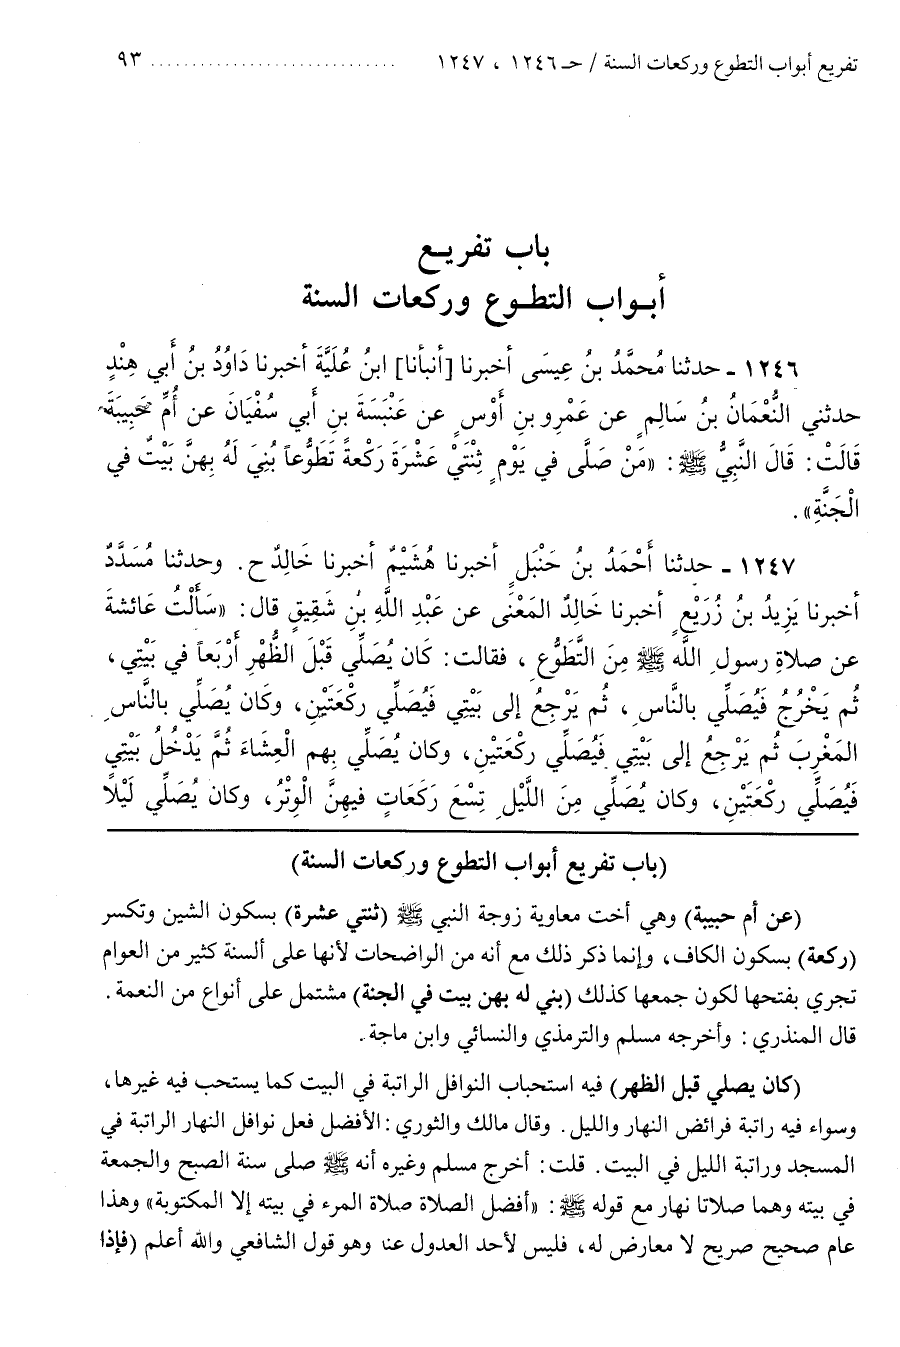 تفريع أبواب التطوع وركعات السنة / حـ ١٢٤٦ ، ١٢٤٧ .............................. ٩٣
باب تفريـع
أبـواب التطـوع وركعات السنة
١٢٤٦ ـ حدثنا مُحمَّدُ بنُ عِيسَى أخبرنا [أنبأنا] ابنُ عُلَيَّةَ أخبرنا دَاوُدُ بنُ أَبي هِنْدٍ
حدثني النُّعْمَانُ بنُ سَالِمٍ عن عَمْرِو بنِ أَوْسٍ عن عَنْبَسَةَ بنِ أبي سُفْيَانَ عن أُمِّ حَبِيبَةَ
قَالَتْ: قَالَ النَّبِيُّ ﷺ: «مَنْ صَلَّى في يَوْمٍ ثِنْتَيْ عَشْرَةَ رَكْعةً تَطَوُّعاً بُنِيَ لَهُ بِهِنَّ بَيْتٌ في
الْجَنَّةِ».
١٢٤٧ ـ حدثنا أَحْمَدُ بنُ حَنْبَلٍ أخبرنا هُشَيْمٌ أخبرنا خَالِدٌ ح. وحدثنا مُسَدَّدٌ
أخبرنا يَزِيدُ بنُ زُرَيْعٍ أخبرنا خَالِدٌ المَعْنَى عن عَبْدِ اللَّهِ بْنِ شَقِيقٍ قال: «سَأَلْتُ عَائشةَ
عن صلاةِ رسولِ اللَّه ﷺ مِنَ التَّطَوُّعِ ، فقالت: كَان يُصَلِّي قَبْلَ الظُّهْرِ أَرْبَعاً في بَيْتِي،
ثُم يَخْرُجُ فَيُصَلِّي بالنَّاسِ، ثُم يَرْجِعُ إلى بَيْتِي فَيُصَلِّي ركْعَتَيْنِ، وكَان يُصَلِّي بالنَّاسِ
المَغْرِبَ ثُم يَرْجِعُ إلى بَيْتِي فَيُصَلِّي ركْعَتَيْنِ، وكان يُصَلِّي بِهم الْعِشَاءَ ثُمَّ يَدْخُلُ بَيْتِي
فَيُصَلِّي ركْعَتَيْنِ، وكان يُصَلِّي مِنَ اللَّيْلِ تِسْعَ رَكَعَاتٍ فيهِنَّ الْوِتْرُ، وكان يُصَلِّي لَيْلًا
(باب تفريع أبواب التطوع وركعات السنة)
(عن أم حبيبة) وهي أخت معاوية زوجة النبي ﷺ (ثنتي عشرة) بسكون الشين وتكسر
(ركعة) بسكون الكاف، وإنما ذكر ذلك مع أنه من الواضحات لأنها على ألسنة كثير من العوام
تجري بفتحها لكون جمعها كذلك (بني له بهن بيت في الجنة) مشتمل على أنواع من النعمة.
قال المنذري: وأخرجه مسلم والترمذي والنسائي وابن ماجة.
(كان يصلي قبل الظهر) فيه استحباب النوافل الراتبة في البيت كما يستحب فيه غيرها،
وسواء فيه راتبة فرائض النهار والليل. وقال مالك والثوري: الأفضل فعل نوافل النهار الراتبة في
المسجد وراتبة الليل في البيت. قلت: أخرج مسلم وغيره أنه ﷺ صلى سنة الصبح والجمعة
في بيته وهما صلاتا نهار مع قوله ﷺ: «أفضل الصلاة صلاة المرء في بيته إلا المكتوبة» وهذا
عام صحيح صريح لا معارض له، فليس لأحد العدول عنا وهو قول الشافعي والله أعلم (فإذا